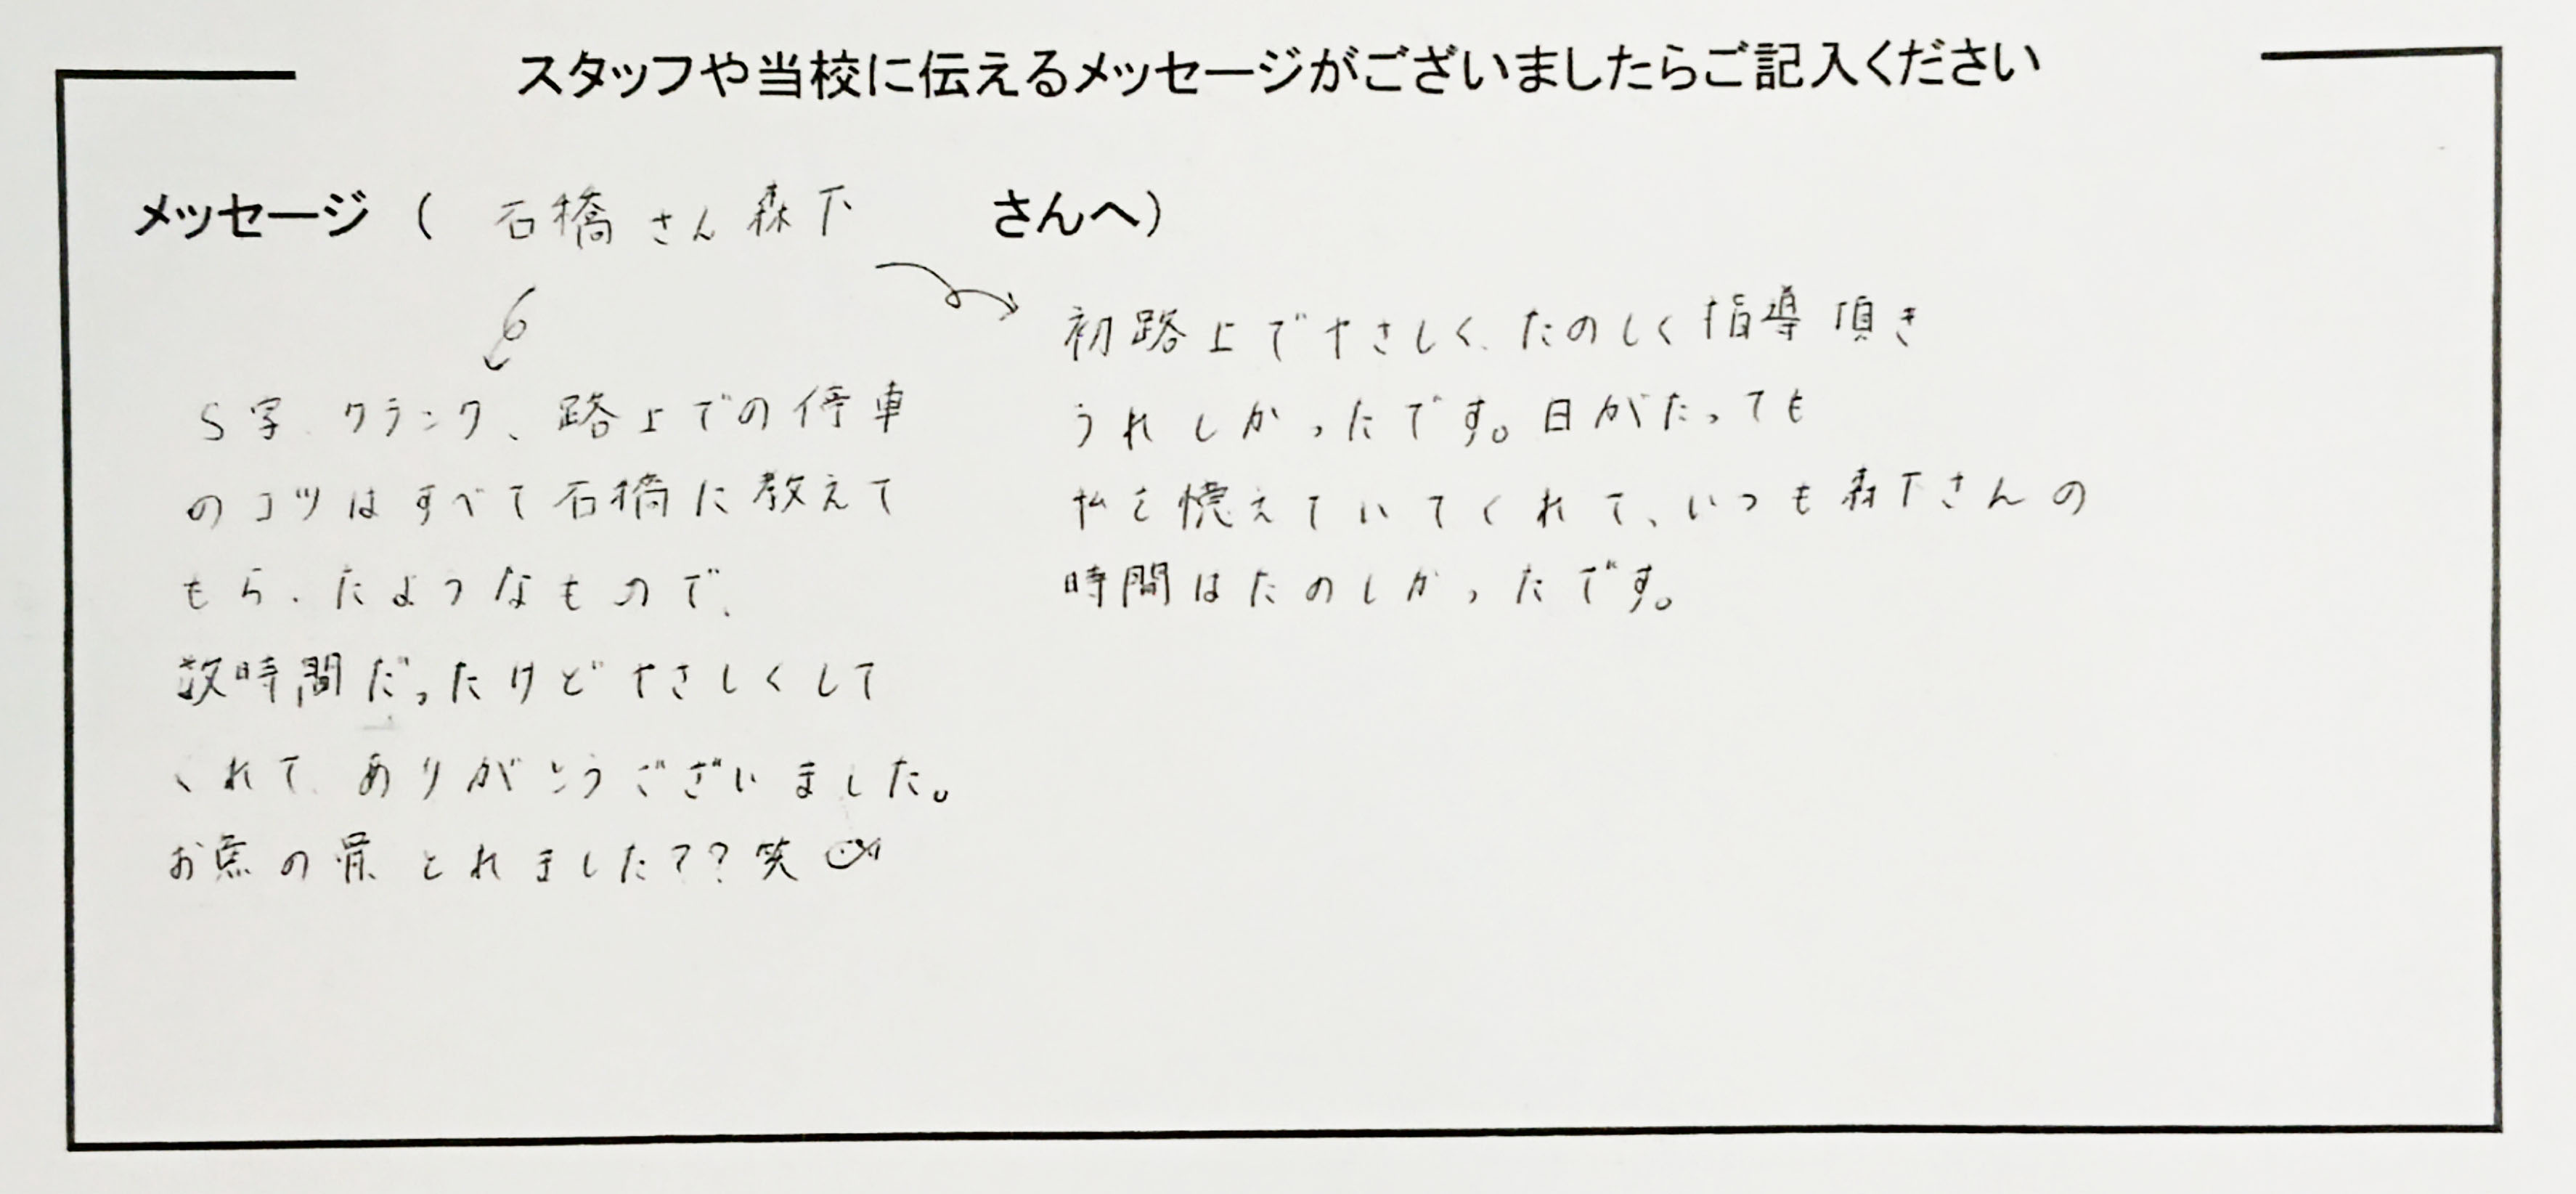 スタッフや当校に伝えるメッセージがございましたらご記入ください
メッセージ（ 石橋さん森下 さんへ）
S字、クランク、路上での停車
のコツはすべて石橋に教えて
もらったようなもので、
数時間だったけどやさしくして
くれて、ありがとうございました。
お魚の骨とれました??笑
初路上でやさしく、たのしく指導頂き
うれしかったです。日がたっても
私を憶えていてくれて、いつも森下さんの
時間はたのしかったです。